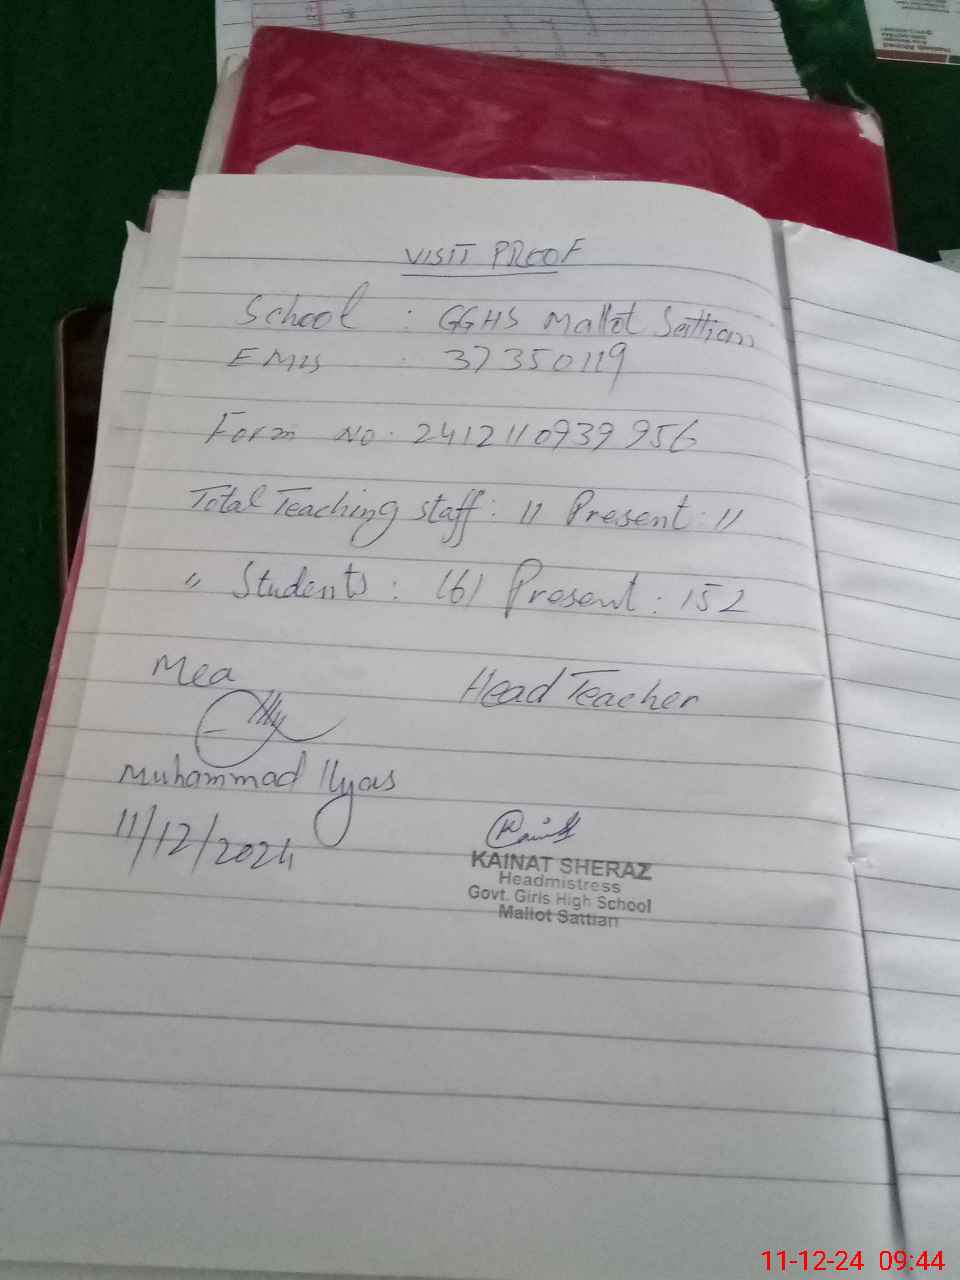 VISIT PROOF
School : GGHS Mallot Sattian
EMIS : 37350119
Form No. 2412110939956
Total Teaching staff : 11 Present : 11
" Students : 161 Present : 152
Mea
Head Teacher
Muhammad Ilyas
11/12/2024
KAINAT SHERAZ
Headmistress
Govt. Girls High School
Mallot Sattian
11-12-24 09:44